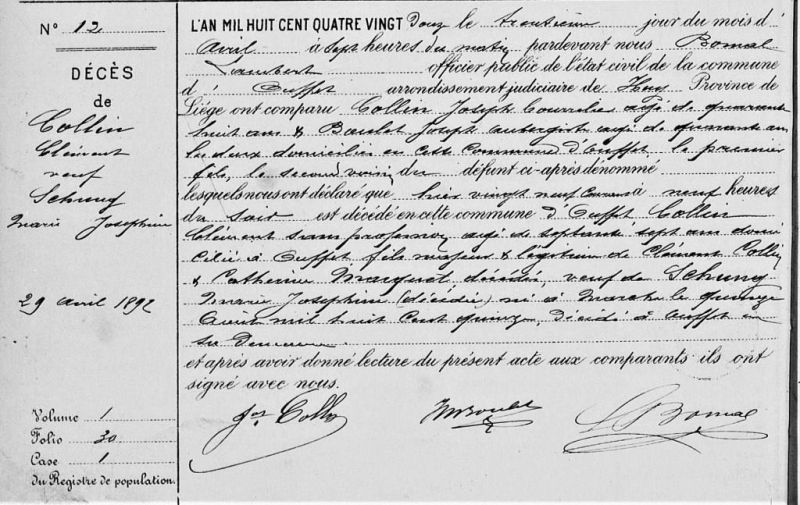 N° 12
DÉCÈS
de
Collin
Clément
veuf
Schung
Marie Josephine
29 avril 1892
Volume 1
Folio 30
Case 1
du Registre de population.
L'AN MIL HUIT CENT QUATRE VINGT Douze le trentième jour du mois d'
Avril à sept heures du matin pardevant nous Bomal
Lambert officier public de l'état civil de la commune
d' Ouffet arrondissement judiciaire de Huy Province de
Liége ont comparu Collin Joseph âgé de quarante
huit ans & Joseph aubergiste agé de quarante ans
les deux domiciliés en cette commune d'Ouffet le premier
fils, le second voisin du défunt ci-après dénommé
lesquels nous ont déclaré que hier vingt neuf courant à neuf heures
du soir est décédé en cette commune d'Ouffet Collin
Clément sans profession agé de septante sept ans domi
cilié à Ouffet fils majeur & légitime de Clément Collin
& Catherine Macquet décédés, veuf de Schung
Marie Josephine (décédée) né à Marche le quinze
Août mil huit cent quinze, décédé à Ouffet en
sa Demeure
et après avoir donné lecture du présent acte aux comparants ils ont
signé avec nous.
Jos Collin
L Bomal